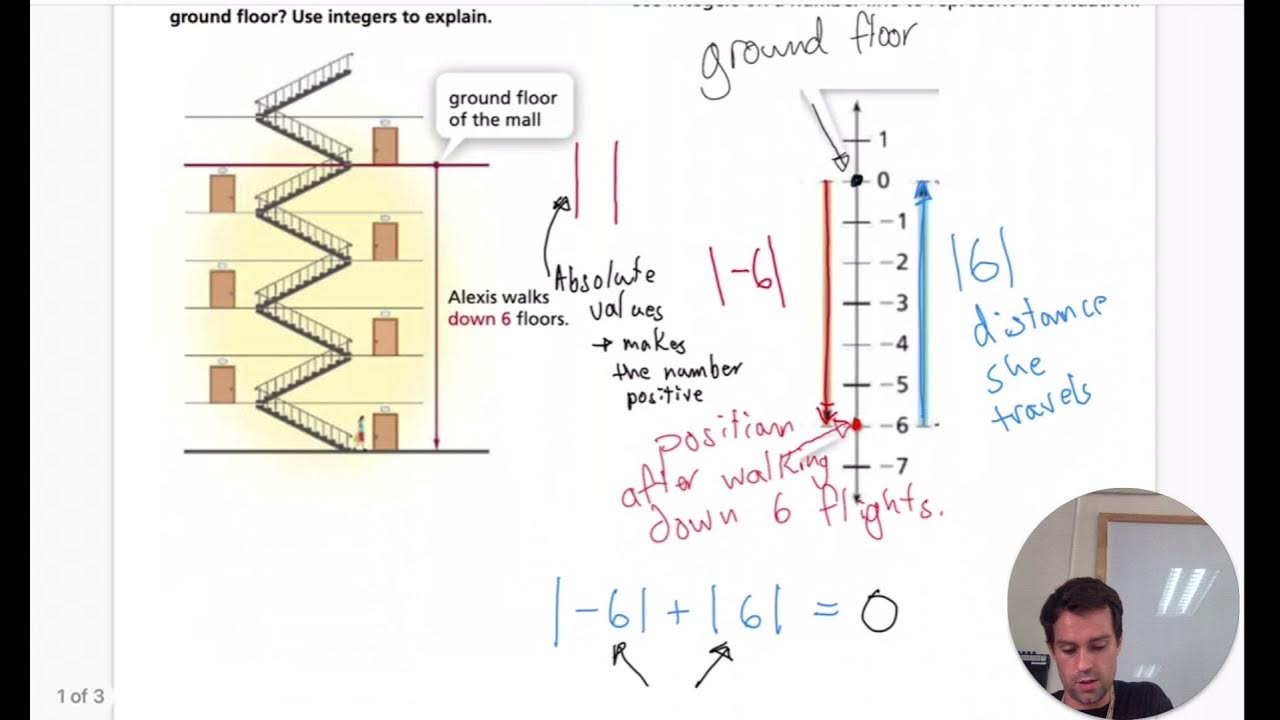 ground floor? Use integers to explain.
ground floor
ground floor
of the mall
1
0
-1
-2
-3
-4
-5
-6
-7
| |
|-6|
|6|
Absolute
values
→ makes
the number
positive
Alexis walks
down 6 floors.
distance
she
travels
position
after walking
down 6 flights.
|-6| + |6| = 0
1 of 3